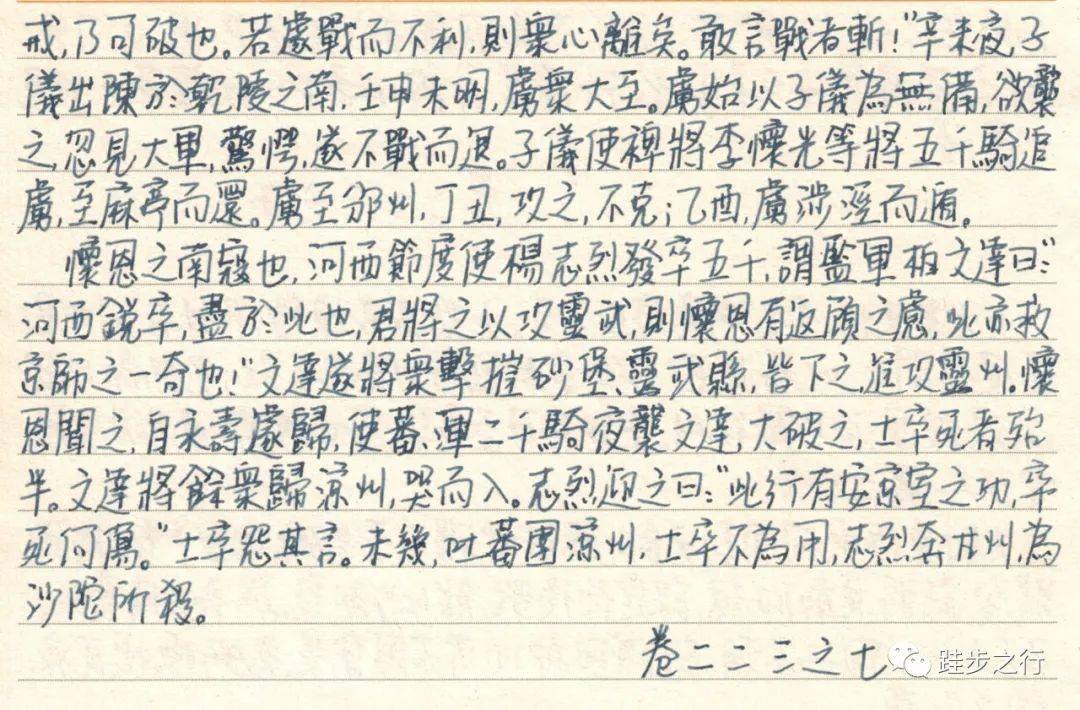 戒,乃可破也。若遽戰而不利,則衆心離矣。敢言戰者斬!"辛未夜,子
儀出陳於乾陵之南,壬申未明,虜衆大至。虜始以子儀為無備,欲襲
之,忽見大軍,驚愕,遂不戰而退。子儀使裨將李懷光等將五千騎追
虜,至麻亭而還。虜至邠州,丁丑,攻之,不克;乙酉,虜涉涇而遁。
懷恩之南寇也,河西節度使楊志烈發卒五千,謂監軍柏文達曰:"
河西銳卒,盡於此也,君將之以攻靈武,則懷恩有返顧之慮,此亦救
京師之一奇也!"文達遂將衆擊摧砂堡、靈武縣,皆下之,進攻靈州。懷
恩聞之,自永壽遽歸,使蕃、渾二千騎夜襲文達,大破之,士卒死者殆
半。文達將餘衆歸涼州,哭而入。志烈迎之曰:"此行有安京室之功,卒
死何傷。"士卒怨其言。未幾,吐蕃圍涼州,士卒不為用,志烈奔甘州,為
沙陀所殺。
卷二二三之七
跬步之行